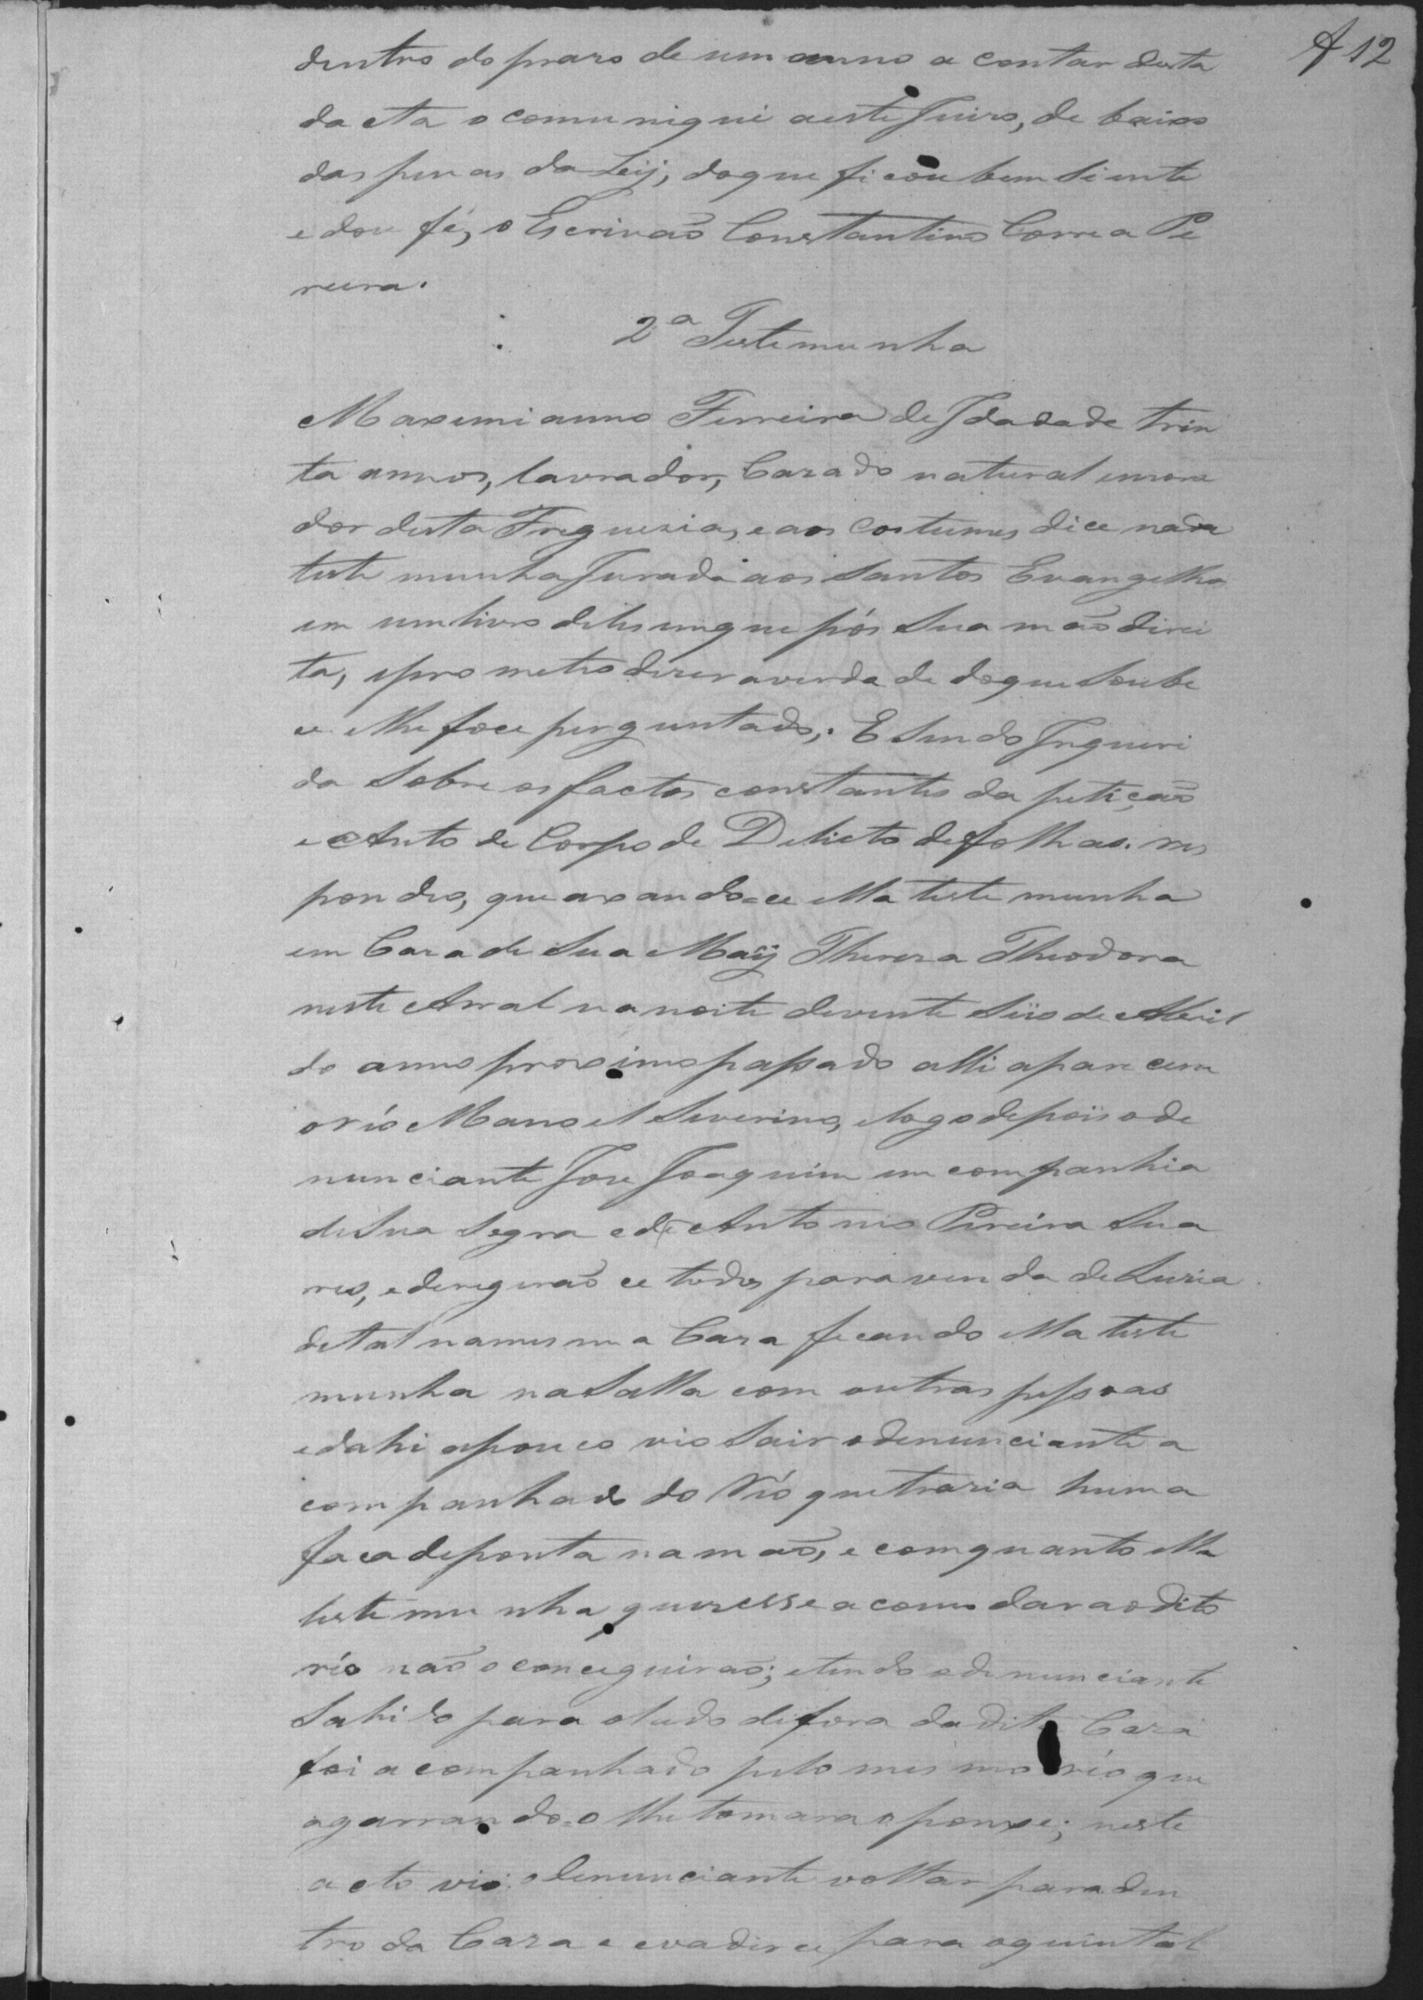 f 12
dentro do praso de um anno a contar desta
dacta o comunique a este Juiso, de baixo
das penas da Leij, do que ficou bem siente
e dou fé, o Escrivaõ Constantino Correa Pe
reira.
2ª Testemunha
Maximianno Ferreira de Idadade trin
ta annos, lavrador, Cazado natural e mora
dor desta Freguezia, e aos costumes dice nada
testemunha Jurada aos Santos Evangelhos
em um livro deles em que pós sua maõ direi
ta, e prometeo diser a verdade do que soube
ce e lhe foce perguntado,. E sendo Inqueri
da sobre os factos constantes da petiçaõ
e Auto de Corpo de Delicto de folhas. res
pondeo, que axando-ce ella testemunha
em Caza de sua Maij Thereza Theodora
neste Arral na noite de vente seis de Abril
do anno proximo passado alli apareceu
o réo Manoel Severino, e logo depois o de
nunciante Jose Joaquim em companhia
de sua Segra e de Antonio Pereira Sua
res, e deregiraõ ce todos para venda de Luzia
de tal na mesma Caza ficando ella teste
munha na Salla com outras pessoas
e dahi a pouco vio sair o denunciante a
companhado do Réo que trazia huma
faca de ponta na maõ, e com quanto ella
testemunha quizesse acomodar ao dito
réo naõ o conceguiraõ; e tendo o denunciante
Sahido para o lado de fora da dita Caza
foi acompanhado pelo mesmo réo que
agarrando-o lhe tomara o ponxe; neste
acto vio o denunciante voltar para den
tro da Caza e evadir ce para o quintal